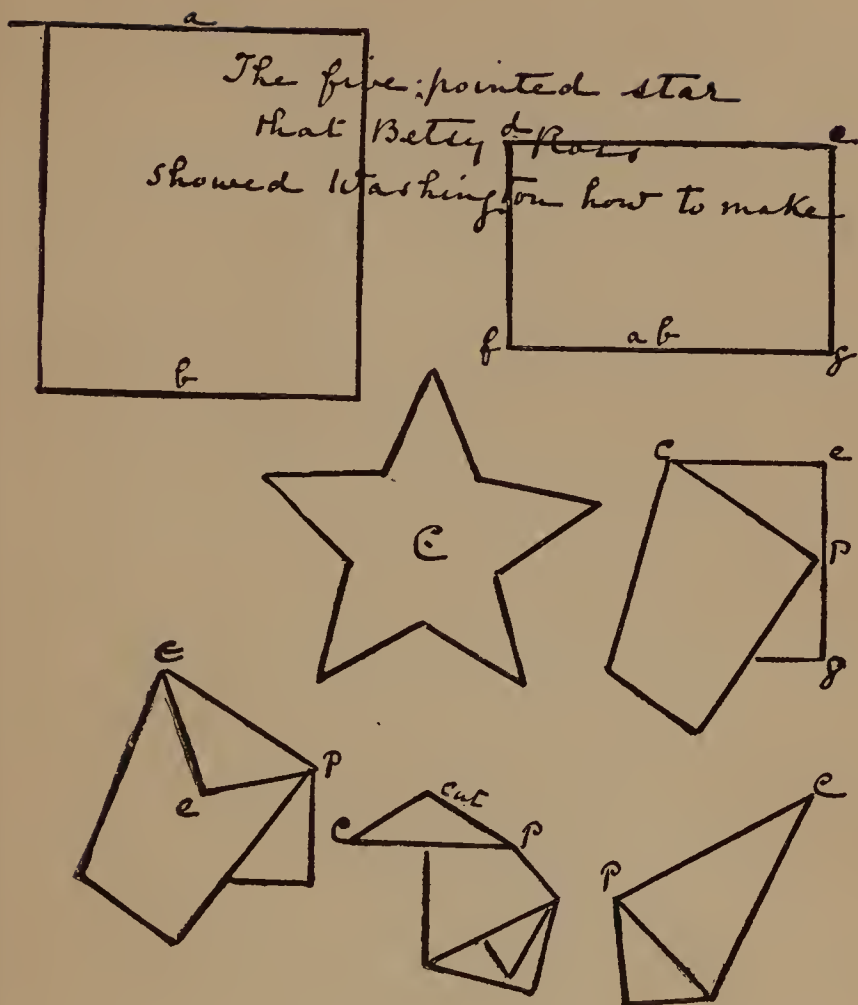 a
The five;pointed star
that Betsy Ross
showed Washington how to make
d
e
b
f
a b
g
C
C
e
P
g
C
P
e
cut
C
P
C
P